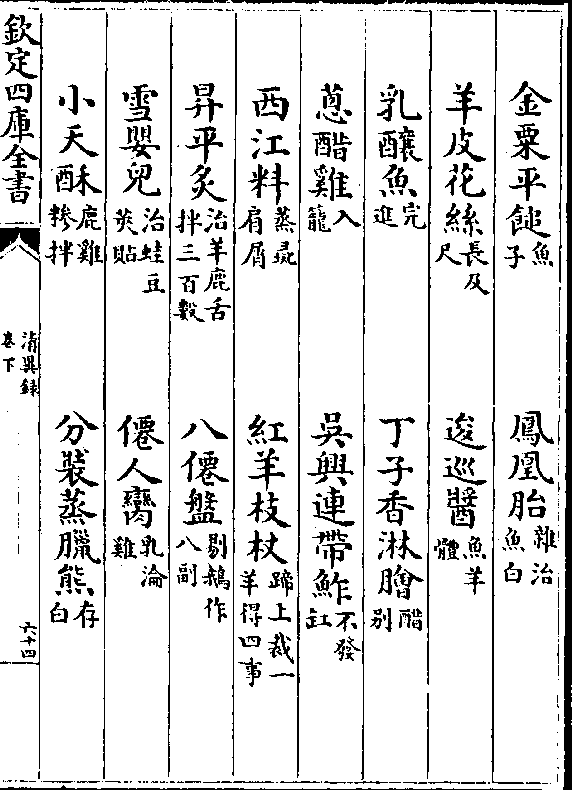 金粟平䭔魚子　鳳凰胎雜治魚白
羊皮花絲長及尺　逡巡醬魚羊體
乳釀魚完進　丁子香淋膾醋别
蔥醋雞入籠　吳興連帶鮓不發缸
西江料蒸彘肩屑　紅羊枝杖蹄上裁一羊得四事
昇平炙治羊鹿舌拌三百數　八僊盤剔鵝作八副
雪嬰兒治蛙豆莢貼　僊人臠乳瀹雞
小天酥鹿雞糝拌　分裝蒸臘熊存白
欽定四庫全書
清異録
卷下
六十四